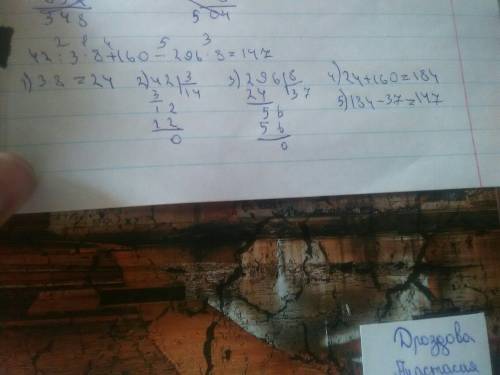 348
504
2 1 4 5 3
42 : 3 · 8 + 160 - 296 : 8 = 147
1) 3 8 = 24 2) 42 | 3 3) 296 | 8 4) 24 + 160 = 184
3 14 24 37 5) 184 - 37 = 147
12 56
12 56
0 0
Дроздова
Анастасия